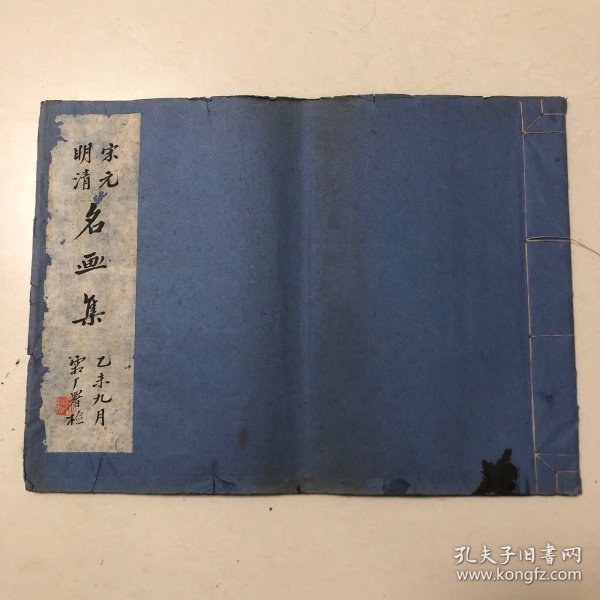 宋元
明清
名画集
乙未九月
霜厂署检
孔夫子旧书网
www.kongfz.com